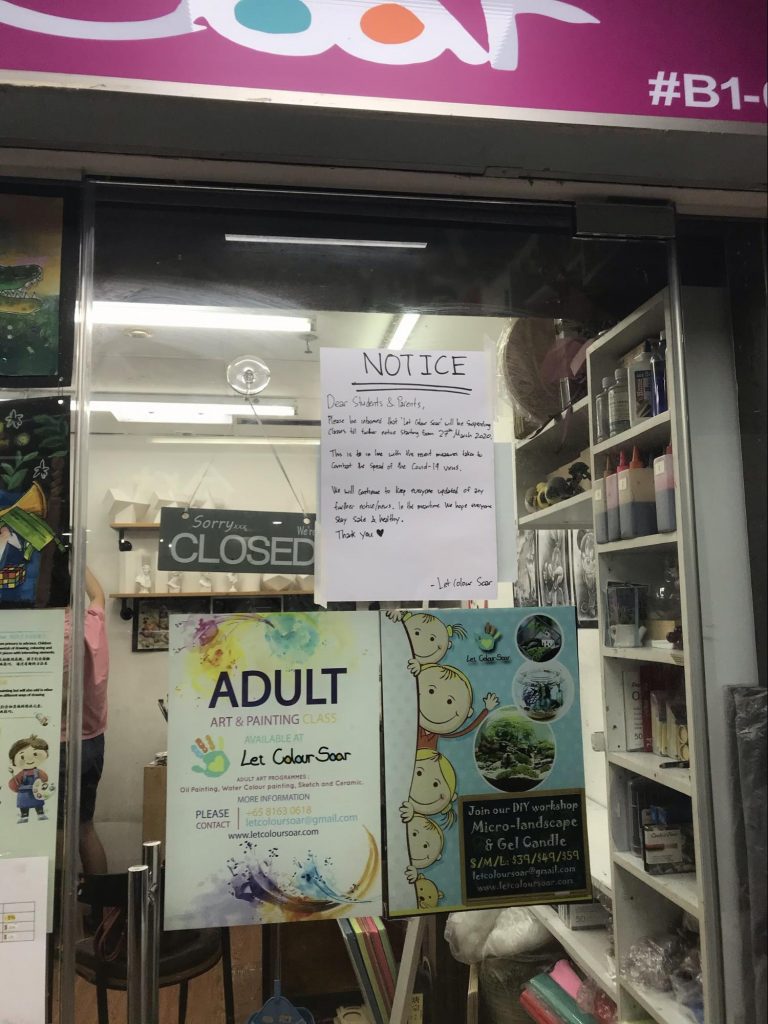 oar
#B1-
NOTICE
Dear Students & Parents,
Please be informed that 'Let Colour Soar' will be suspending
classes till further notice starting from 27th March 2020.
This is to in line with the recent measures taken to
combat the spread of the Covid-19 virus.
We will continue to keep everyone updated of any
further notice/news. In the meantime we hope everyone
stay safe & healthy.
Thank you ♥
- Let Colour Soar
Sorry...
We're
CLOSED
ADULT
ART & PAINTING CLASS
AVAILABLE AT
Let Colour Soar
ADULT ART PROGRAMMES :
Oil Painting, Water Colour painting, Sketch and Ceramic.
MORE INFORMATION
PLEASE CONTACT
+65 8163 0618
letcoloursoar@gmail.com
www.letcoloursoar.com
Let Colour Soar
Join our DIY workshop
Micro-landscape
& Gel Candle
S/M/L: $39/$49/$59
letcoloursoar@gmail.com
www.letcoloursoar.com